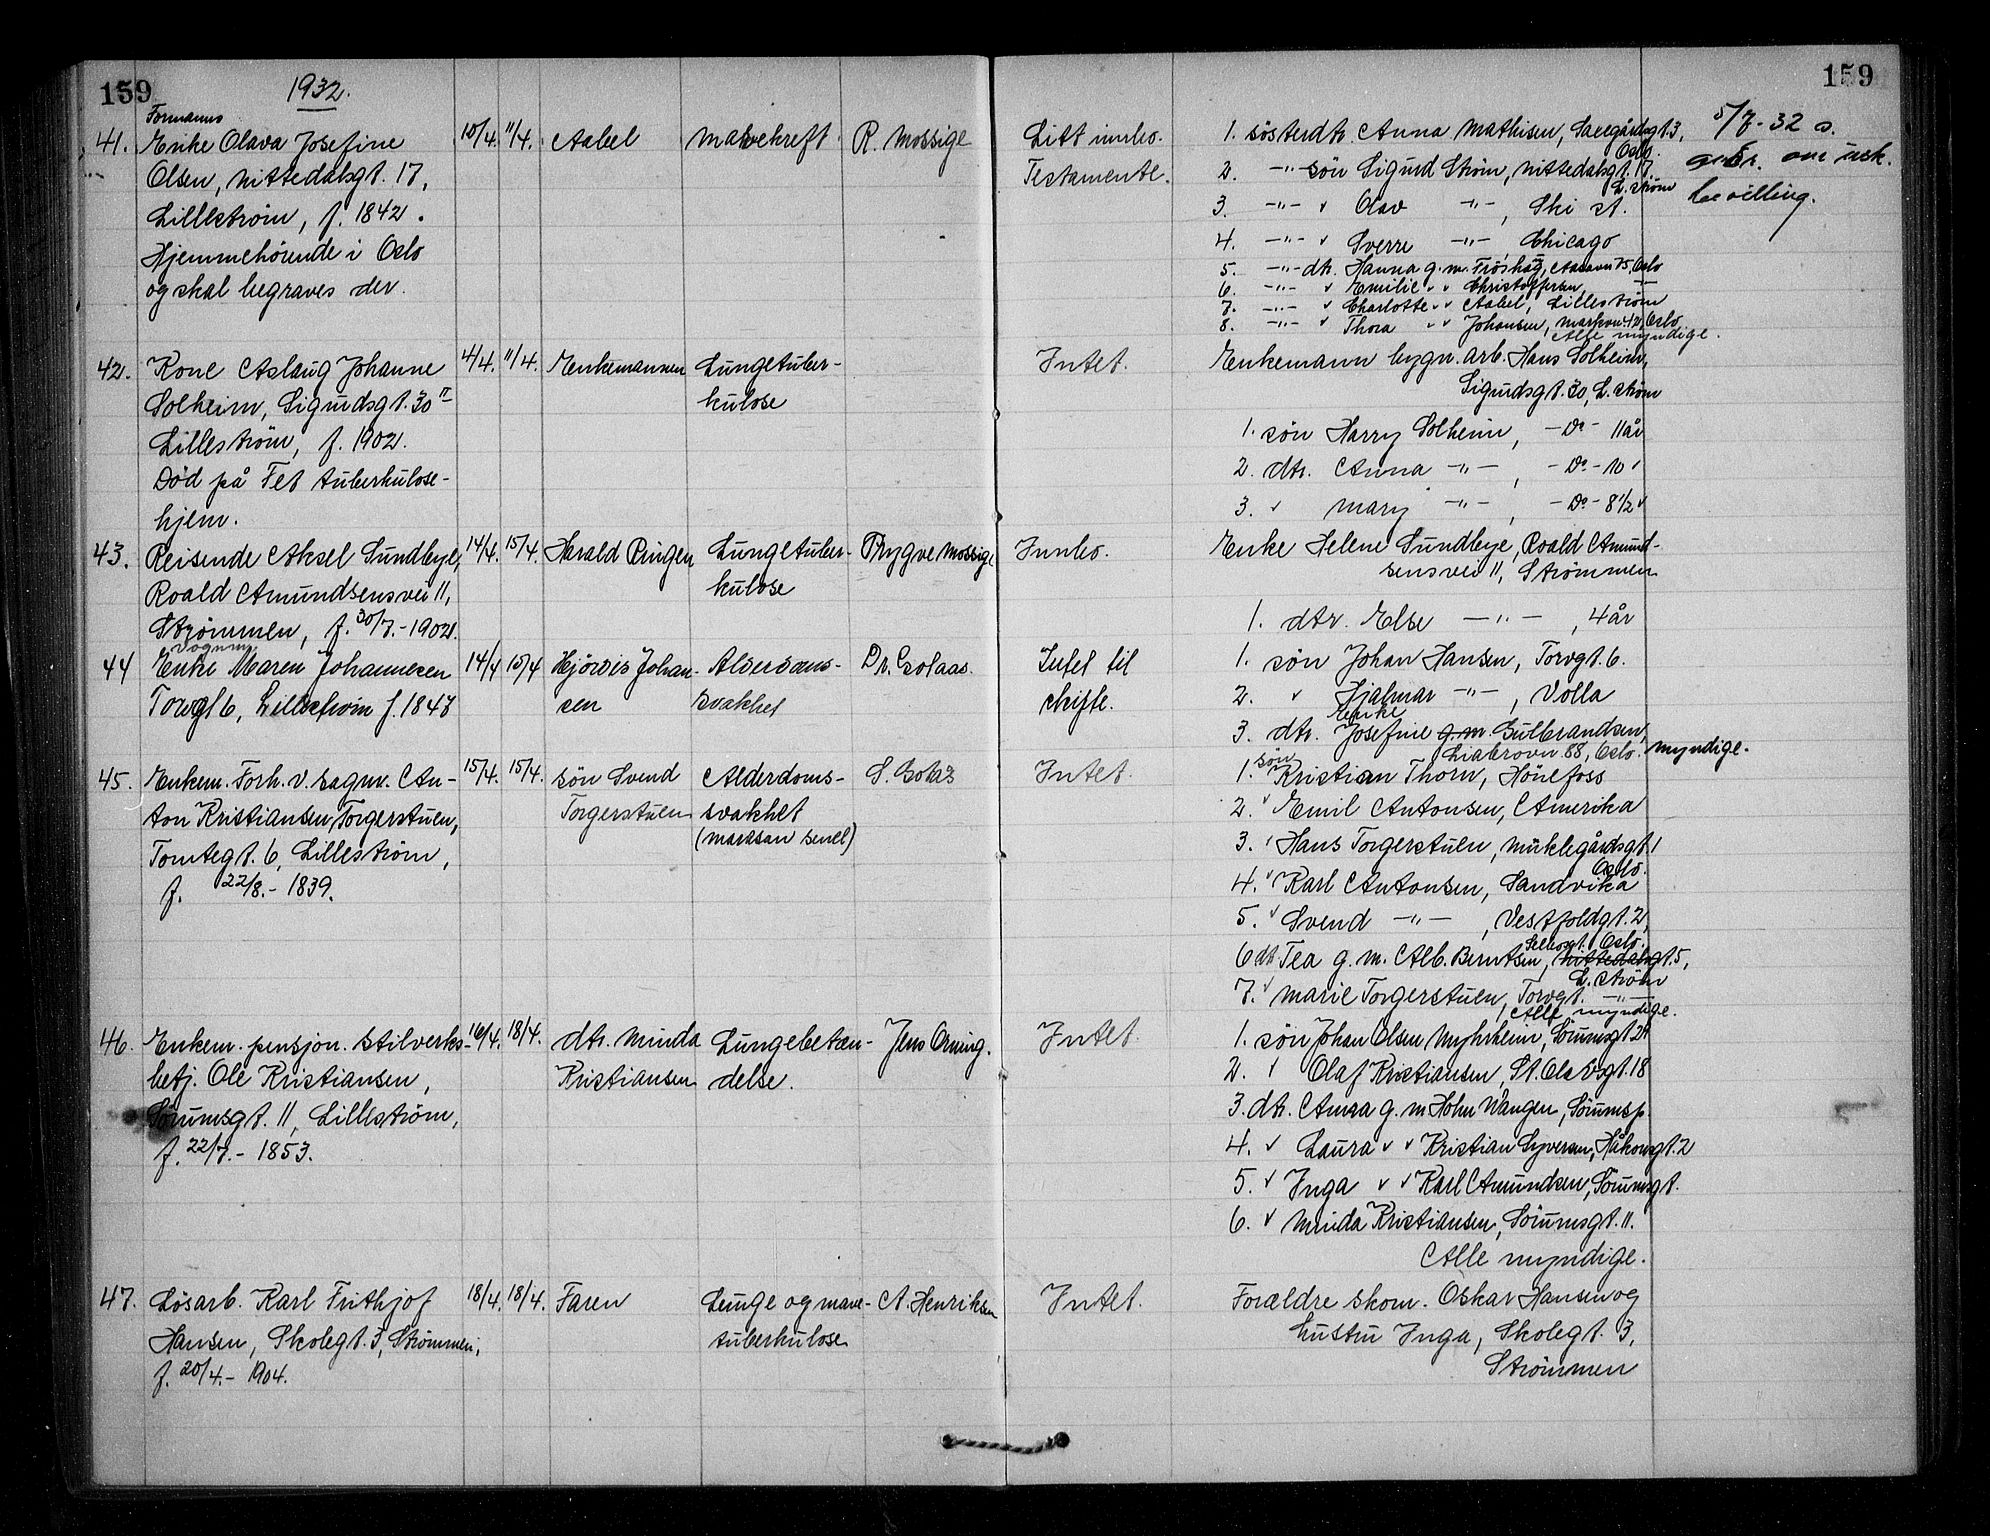 159
1932.
159
Formanns
41. Enke Olava Josefine 10/4. 11/4. Aabel mavekreft R. Mossige Litt innbo. 1. søsterdtr. Anna Mathisen, Saxegårdsgt. 3, 5/7-32 s.
Oslo.
Olsen, Nittedalsgt. 17, Testamente. 2. -"- søn Sigurd Strøm, Nittedalsgt. 17
L.strøm
Lillestrøm, f. 1842. 3. -"- " Olav -"-, Ski st. bevilling.
Hjemmehørende i Oslo 4. -"- " Sverre -"-, Chicago
og skal begraves der. 5. -"- dtr. Hanna g.m. Frøshaug, 75, Oslo
6. -"- " Emilie " " Christoffersen, -"-
7. -"- " Charlotte " " Aabel, Lillestrøm
8. -"- " Thora " " Johansen, Markvn. 42, Oslo
Alle myndige.
42. Kone Aslaug Johanne 4/4. 11/4. Enkemannen Lungetuber- Intet. Enkemann bygn. arb. Hans Solheim,
Solheim, Sigurdsgt. 30 II kulose Sigurdsgt. 30, L.strøm
Lillestrøm, f. 1902. 1. søn Harry Solheim, -Do- 11 år
Død på Fet tuberkulose- 2. dtr. Anna -"-, -Do- 10 "
hjem. 3. " Mary -"-, -Do- 8 1/2 "
43. Reisende Aksel Sundbye, 14/4. 15/4. Harald Ringen Lungetuber- Trygve Mossige Innbo. Enke Helene Sundbye, Roald Amund-
Roald Amundsensvei 11, kulose sensvei 11, Strømmen
Strømmen, f. 30/7.-1902. 1. dtr. Else -"-, 4 år
44 Enke Maren Johannesen 14/4 15/4 Hjørdis Johan- Alderdoms- Dr. Golaas. Intet til 1. søn Johan Hansen, Torvgt. 6.
Torvgt 6, Lillestrøm f. 1843 sen svakhet skifte. 2. " Hjalmar -"-, Volla
Enke
3. dtr. Josefine g.m. Gulbrandsen,
Liabrovn 88, Oslo. myndige.
45. Enkem. Forh. v. sagmr. An- 15/4. 15/4. søn Svend Alderdoms- S. Golaas Intet. 1. søn Kristian Thorn, Hønefoss
ton Kristiansen Torgerstuen, Torgerstuen svakhet 2. " Emil Antonsen, Amerika
Tomtegt. 6, Lillestrøm, (marasm senil) 3. " Hans Torgerstuen, Munklegårdsgt. 1
Oslo.
f. 22/8.-1839. 4. " Karl Antonsen, Sandvika
5. " Svend -"-, Vestfoldgt. 2,
Oslo.
6 dtr Tea g.m. Alb. Berntsen, Nittedalsgt. 5,
L.strøm
7. " Marie Torgerstuen, Torvgt. -"-
Alle myndige.
46. Enkem. pensjon. stilverks- 16/4. 18/4. dtr. Minda Lungebeten- Jens Orning. Intet. 1. søn Johan Olsen Myhrheim, Sørumsgt 24
betj. Ole Kristiansen, Kristiansen delse. 2. " Olaf Kristiansen, St. Olavsgt. 18
Sørumsgt. 11, Lillestrøm, 3. dtr. Anna g.m Holm Wangen, Sørumsp.
f. 22/7.-1853. 4. " Laura " " Kristian Syversen, Håkonsgt. 2
5. " Inga " " Karl Amundsen, Sørumsgt.
6. " Minda Kristiansen, Sørumsgt. 11.
Alle myndige.
47. Løsarb. Karl Frithjof 18/4. 18/4. Faren Lunge og mave- A. Henriksen Intet. Forældre skom. Oskar Hansen og
Hansen, Skolegt. 3, Strømmen, tuberkulose hustru Inga, Skolegt. 3,
f. 20/4.-1904. Strømmen